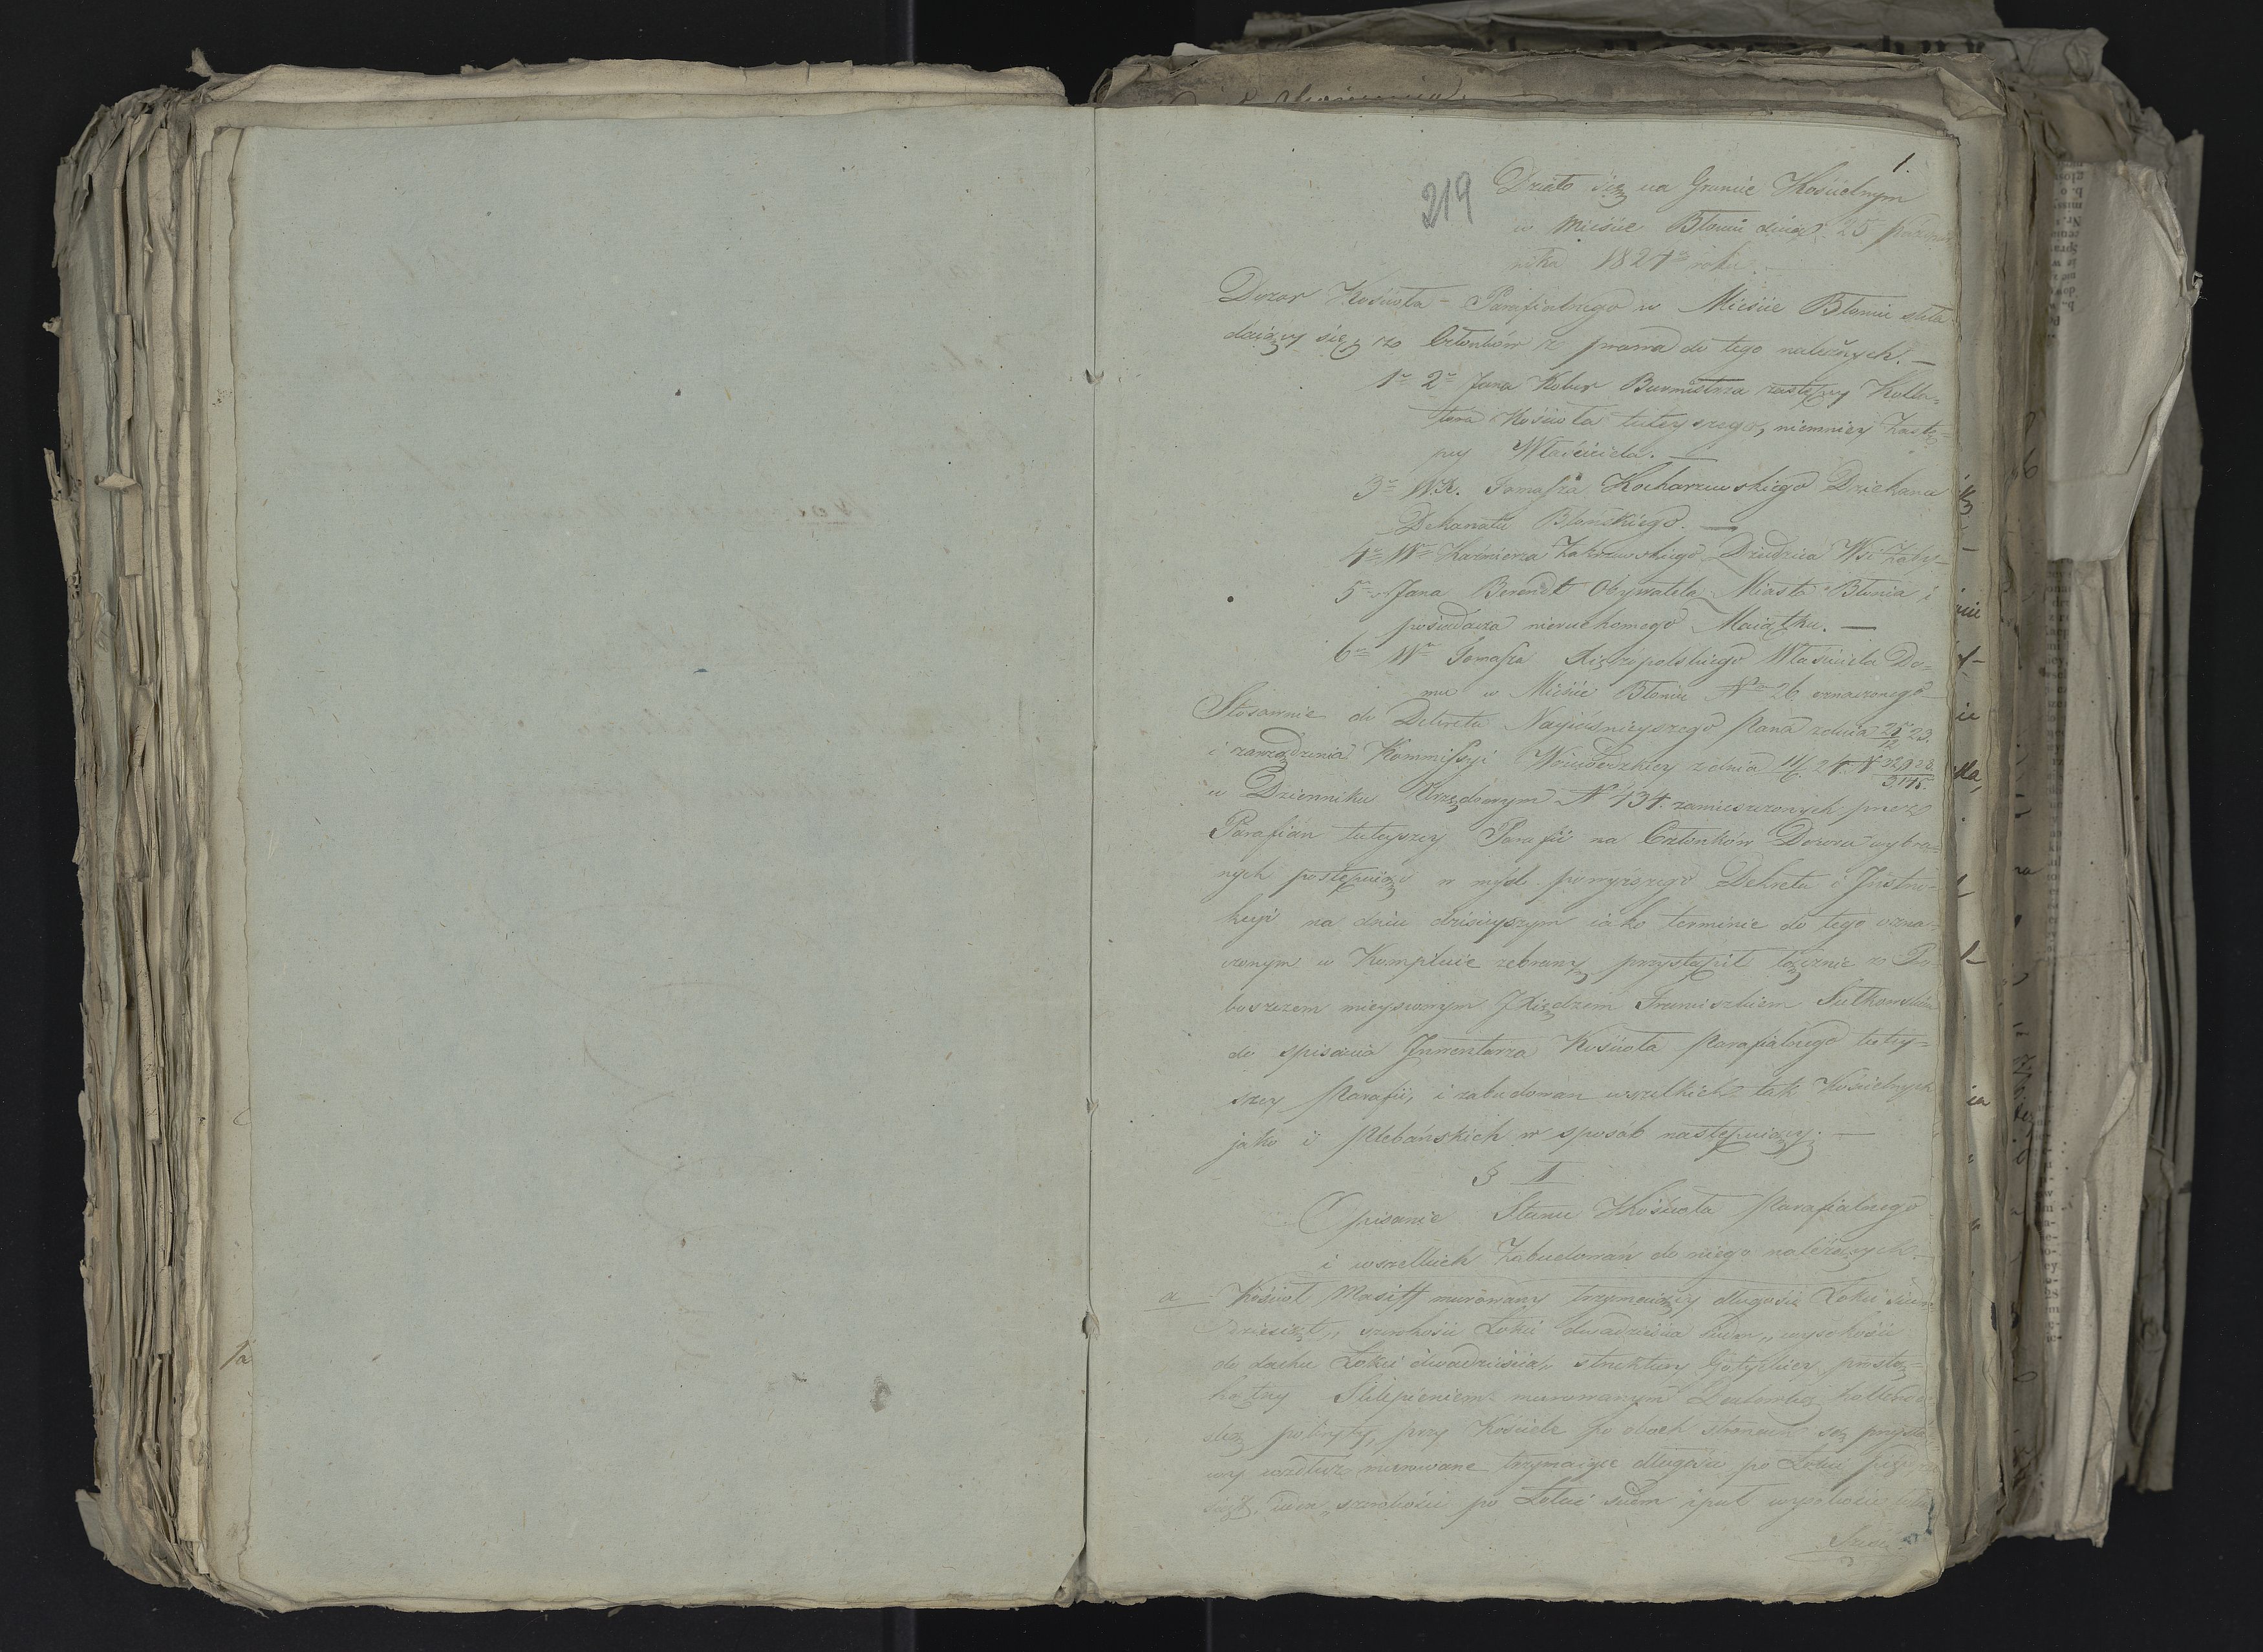 1.
219
Działo się na Gruncie Kościelnym
w Mieście Błoniu dnia 25 Paździer
nika 1824 roku.
Dozor Kościoła Parafialnego w Mieście Błoniu skła
daiący się z Członków z prawa do tego należnych. —
1o 2o Jana Kober Burmistrza zastępcy Kolla=
tora Kościoła tuteyszego, niemniey Zastę=
pcy Właściciela. —
3o W.X. Tomasza Kocharzewskiego Dziekana
Dekanatu Błońskiego. —
4o Wo Kaźmierza Zakrzewskiego Dziedzica Wsi
5o Jana Berendt Obywatela Miasta Błonia i
posiadacza nieruchomego Maiątku. —
6o Wo Tomasza Xiężopolskiego Właściciela Do=
mu w Mieście Błoniu No 26 oznaczonego
Stosownie do Dekretu Nayiaśnieyszego Pana z dnia 23.
i zarządzenia Kommissyi Woiewódzkiey z dnia
w Dzienniku Urzędowym N 434. zamieszczonych przez
Parafian tuteyszey Parafii na Członków Dozoru wybra=
nych postępuiąc w myśl powyższego Dekretu i Instru=
kcyi na dniu dzisieyszym iako terminie do tego ozna=
czonym w Komplecie zebrany przystąpił łącznie z Pro=
boszczem mieyscowym Xiędzem Franciszkiem Sutkowskim
do spisania Inwentarza Kościoła Parafialnego tutey=
szey Parafii, i zabudowan wszelkich tak Kościelnych
jako i Plebańskich w sposób następuiący: —
§ I
Opisanie Stanu Kościoła Parafialnego
i wszelkich Zabudowań do niego należących. —
a Kościoł Massiff murowany trzymaiący długości Łokci siem
dziesiąt, szerokości Łokci dwadzieścia siedm, wysokości
do dachu Łokci dwadzieścia struktury Gotyckiey prosto=
kątny Sklepieniem murowanym Dachówką
pokryty, przy Kościele po obuch stronach są przysta
wy wzdłuż murowane trzymaiące długości po Łokci
szerokości po Łokci siedm i puł wysokości